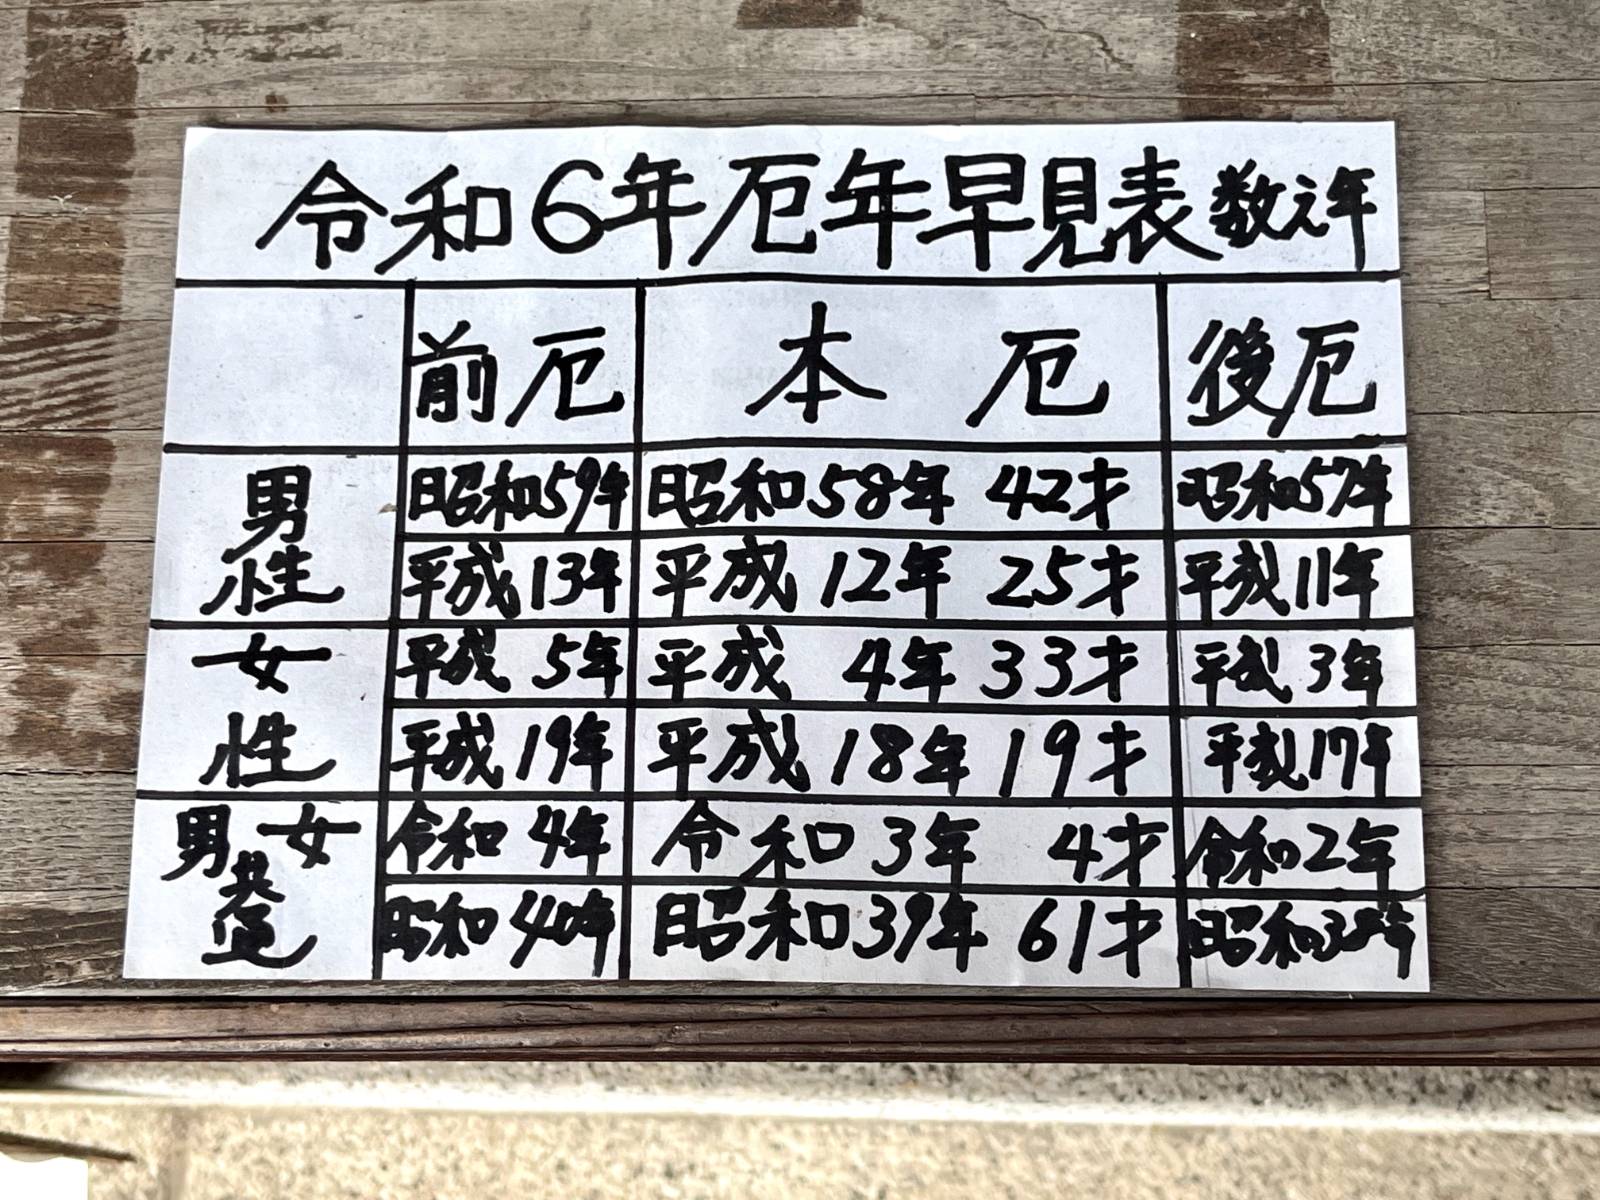 令和6年厄年早見表 数え年
前厄 本厄 後厄
男性 昭和59年 昭和58年 42才 昭和57年
平成13年 平成12年 25才 平成11年
女性 平成5年 平成4年 33才 平成3年
平成19年 平成18年 19才 平成17年
男女共通 令和4年 令和3年 4才 令和2年
昭和40年 昭和39年 61才 昭和38年